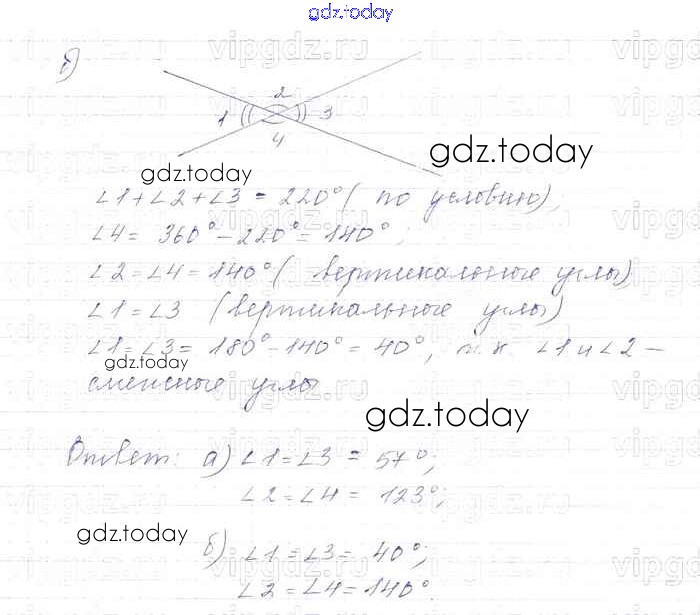 gdz.today
б)
2
1 3
4
gdz.today
gdz.today
∠1+∠2+∠3 = 220° ( по условию),
∠4 = 360° - 220° = 140° ;
∠2 = ∠4 = 140° ( вертикальные углы)
∠1 = ∠3 (вертикальные углы)
∠1 = ∠3 = 180° - 140° = 40°, т.к. ∠1 и ∠2 —
смежные углы
gdz.today
Ответ: а) ∠1 = ∠3 = 57°;
∠2 = ∠4 = 123°;
gdz.today
б) ∠1 = ∠3 = 40°;
∠2 = ∠4 = 140°.